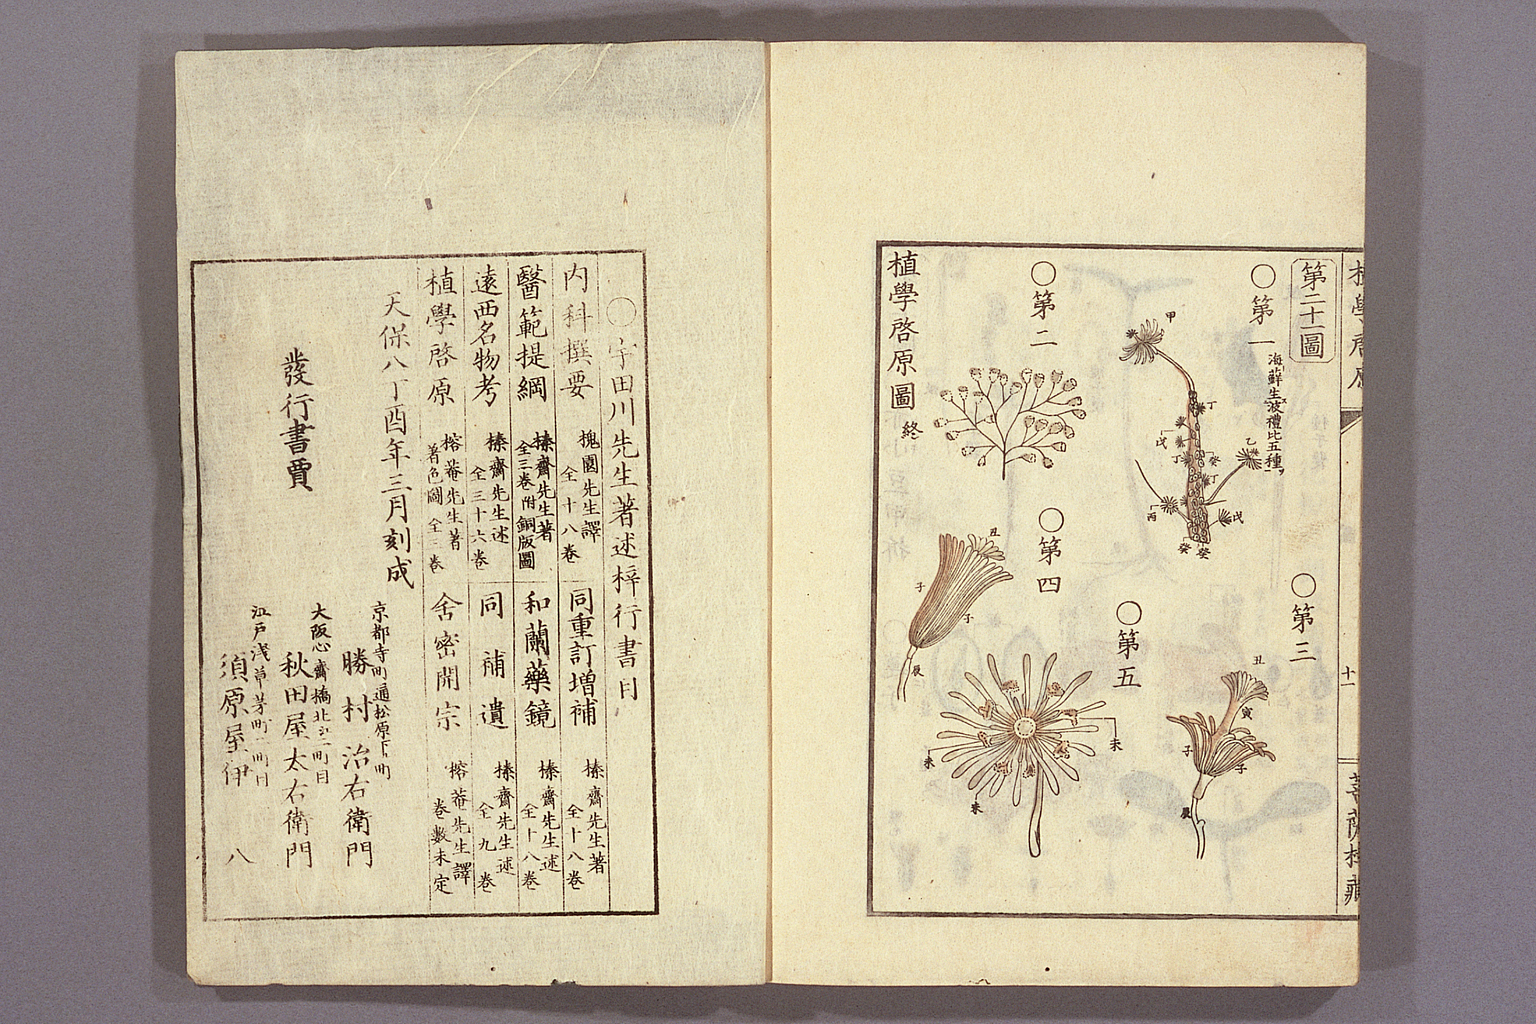 植學啓原
十一
菩薩樓藏
第二十一圖
○第一
海蘚生波禮比五種
甲
丁
癸
戊
丁
癸
丁
乙
丙
戊
癸
癸
○第二
○第三
丑
寅
子
子
辰
○第四
丑
子
子
辰
○第五
未
未
未
植學啓原圖終
○宇田川先生著述梓行書目
内科撰要 槐園先生譯 全十八卷
同重訂増補 榛齋先生著 全十八卷
醫範提綱 榛齋先生著 全三卷附銅版圖
和蘭藥鏡 榛齋先生述 全十八卷
遠西名物考 榛齋先生述 全三十六卷
同補遺 榛齋先生述 全九卷
植學啓原 榕菴先生著 著色圖全三卷
舍密開宗 榕菴先生譯 卷數未定
天保八丁酉年三月刻成
發行書賈
京都寺町通松原下町
勝村治右衛門
大阪心齋橋北二町目
秋田屋太右衛門
江戸淺草茅町二町目
須原屋伊八